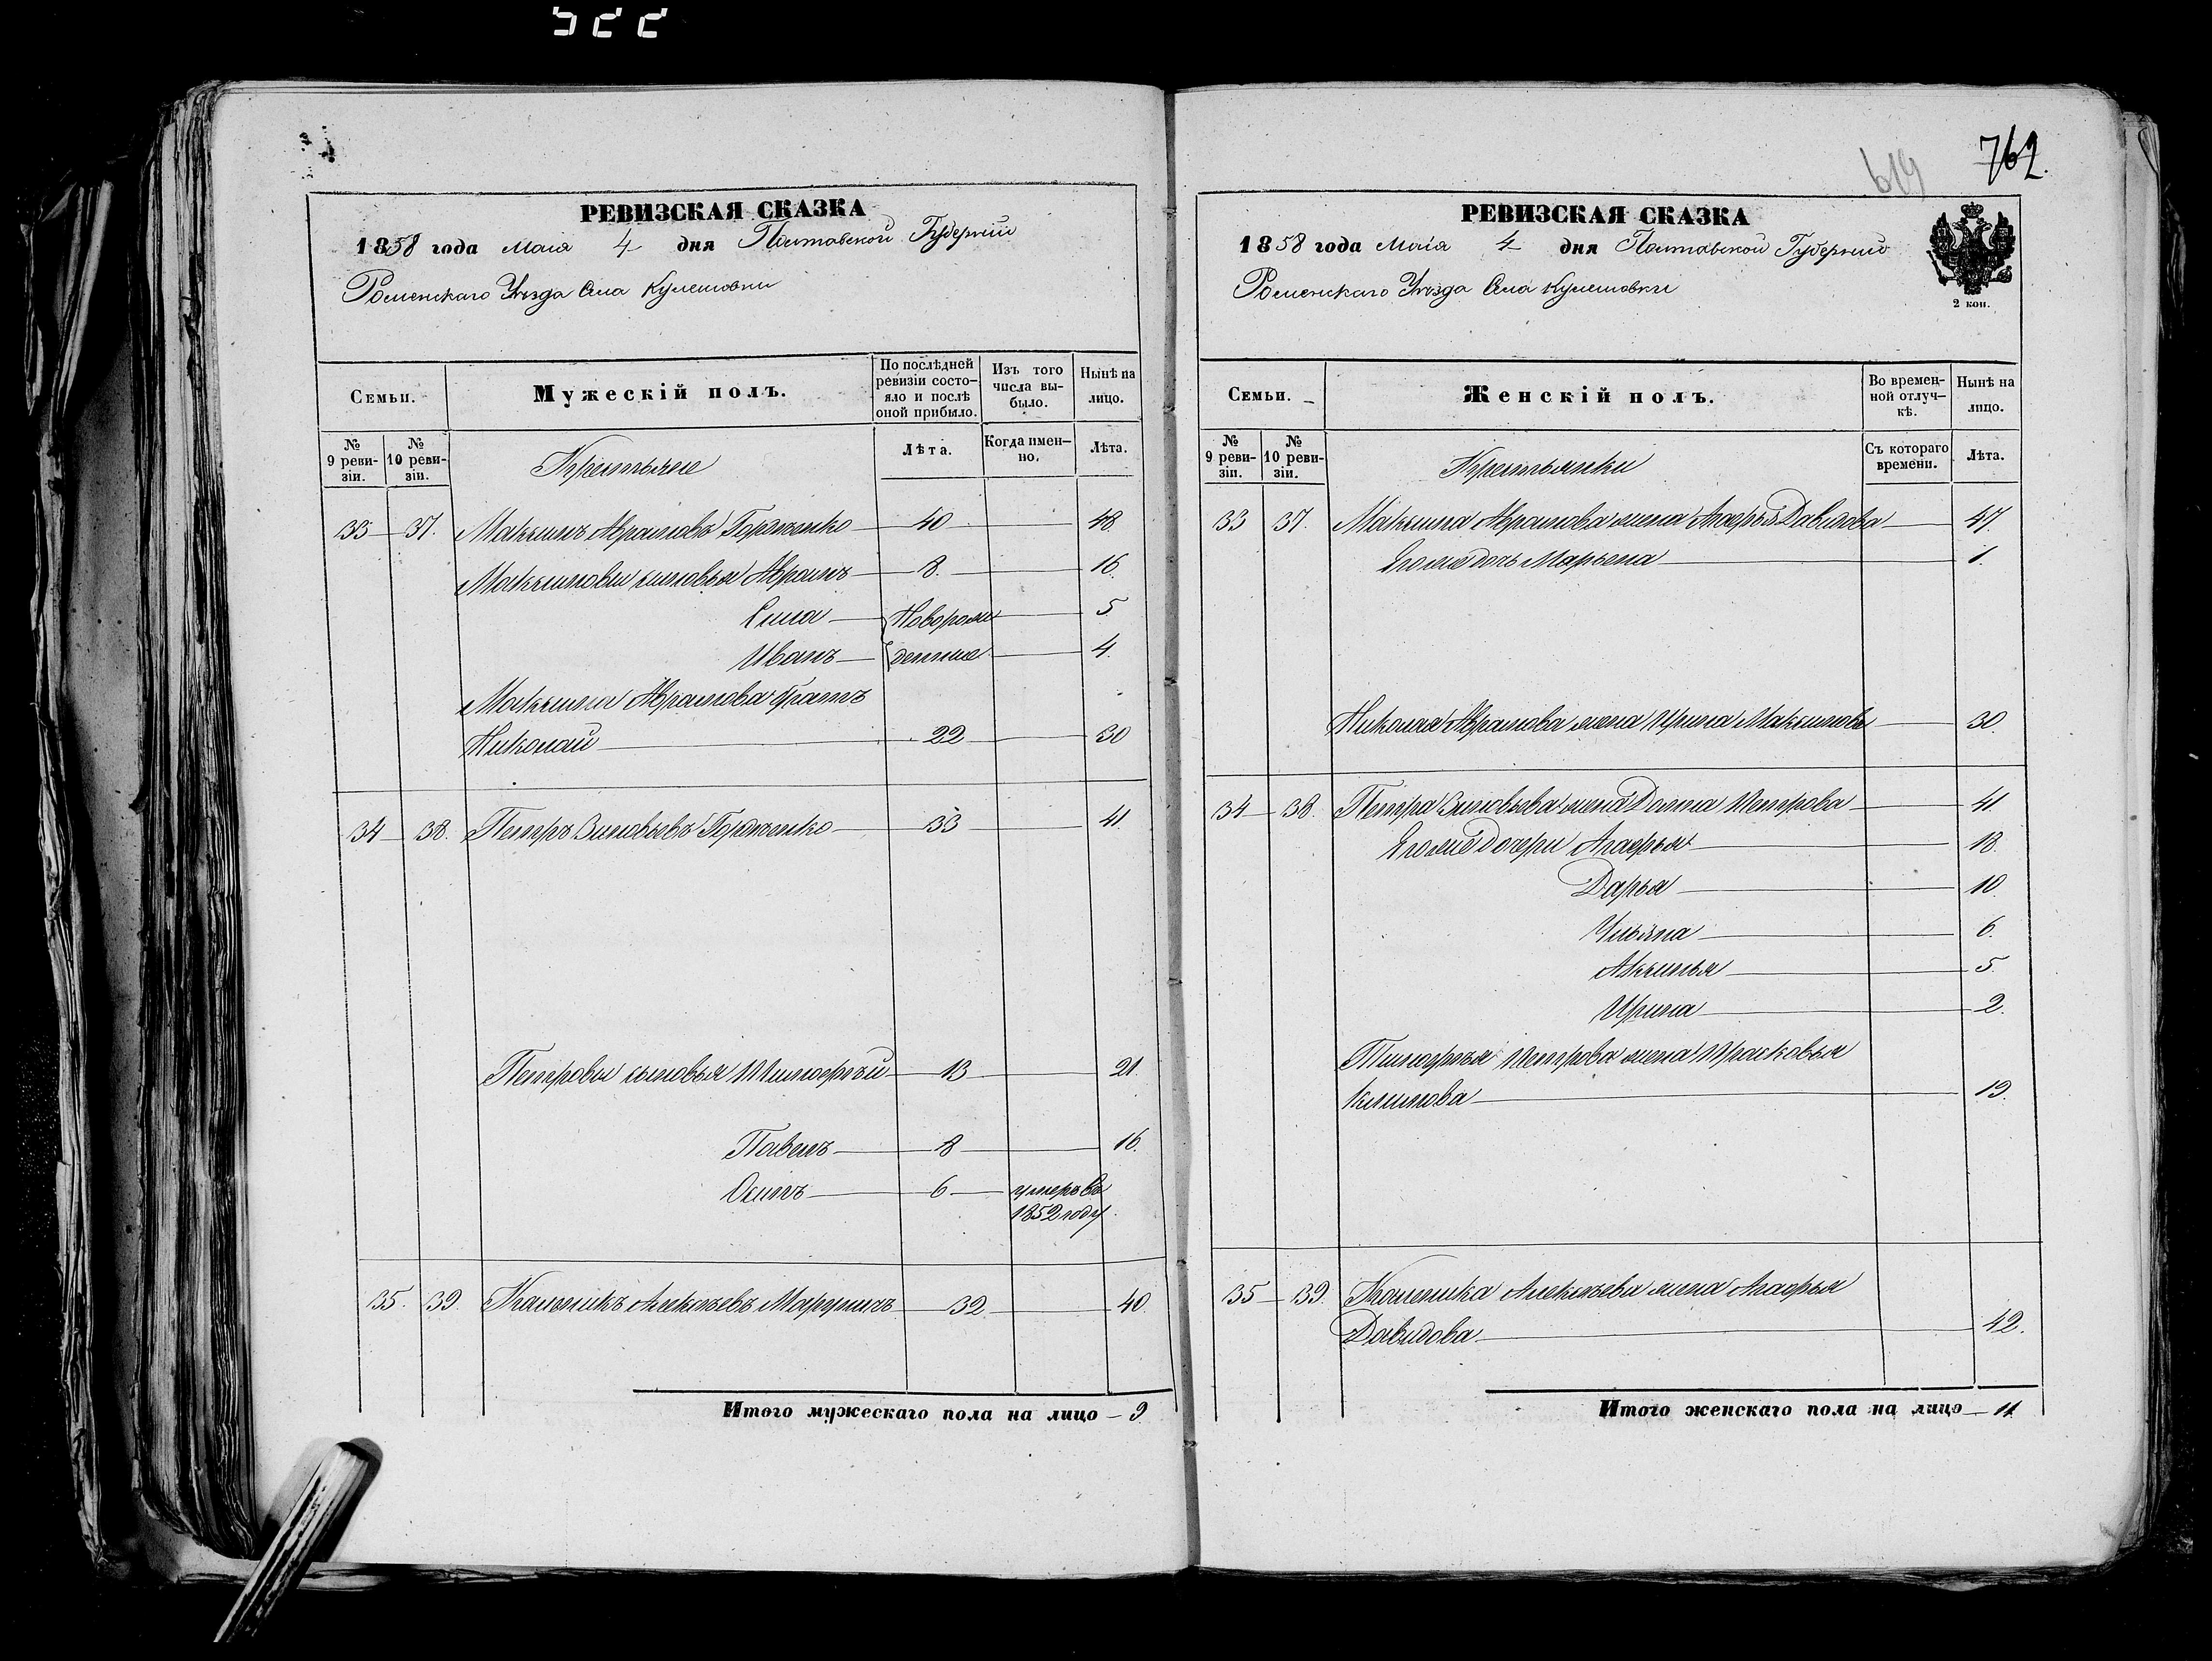 522
РЕВИЗСКАЯ СКАЗКА
1858 года Маія 4 дня Полтавской Губерніи
Роменскаго Уѣзда Села Кулешовки
Семьи.
Мужескій полъ.
По послѣдней ревизіи состояло и послѣ оной прибыло.
Изъ того числа выбыло.
Нынѣ на лицо.
№ 9 ревизіи.
№ 10 ревизіи.
Крестьяне
Лѣта.
Когда именно.
Лѣта.
33 37. Максимъ Абрамовъ Гордѣенко 40 48.
Максимовы сыновья Абрамъ 8. 16.
Сила Новорож 5
Иванъ денные 4.
Максима Абрамова братъ
Николай 22 30
34 38. Петръ Зиновьевъ Гордѣенко 33 41.
Петровы сыновья Тимофѣй 13 21.
Павелъ 8 16.
Осипъ 6 умеръ въ
1852 году.
35. 39. Калѣникъ Алексѣевъ 32 40.
Итого мужескаго пола на лицо 9
619
762.
РЕВИЗСКАЯ СКАЗКА
1858 года Маія 4 дня Полтавской Губерніи
Роменскаго Уѣзда Села Кулешовки
2 коп.
Семьи.
Женскій полъ.
Во временной отлучкѣ.
Нынѣ на лицо.
№ 9 ревизіи.
№ 10 ревизіи.
Крестьянки
Съ котораго времени.
Лѣта.
33 37. Максима Абрамова жена Агафья Давидова 47
Егоже дочь Марьяна 1.
Николая Абрамова жена Ирина Максимова 30.
34 38. Петра Зиновьева жена Домна Петрова 41
Егоже дочери Агафья 18.
Дарья 10.
Ульяна 6.
Аксинья 5.
Ирина 2.
Тимофѣя Петрова жена Прасковья
Климова 19.
35 39. Калѣника Алексѣева жена Агафья
Давидова 42.
Итого женскаго пола на лицо 11